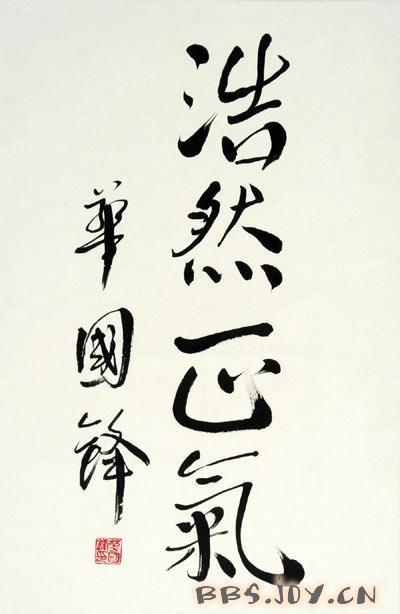 浩然正氣
華國鋒
BBS.JOY.CN